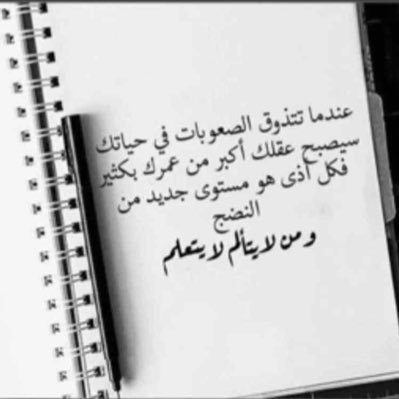 عندما تتذوق الصعوبات في حياتك
سيصبح عقلك أكبر من عمرك بكثير
فكل أذى هو مستوى جديد من
النضج
ومن لا يتألم لا يتعلم